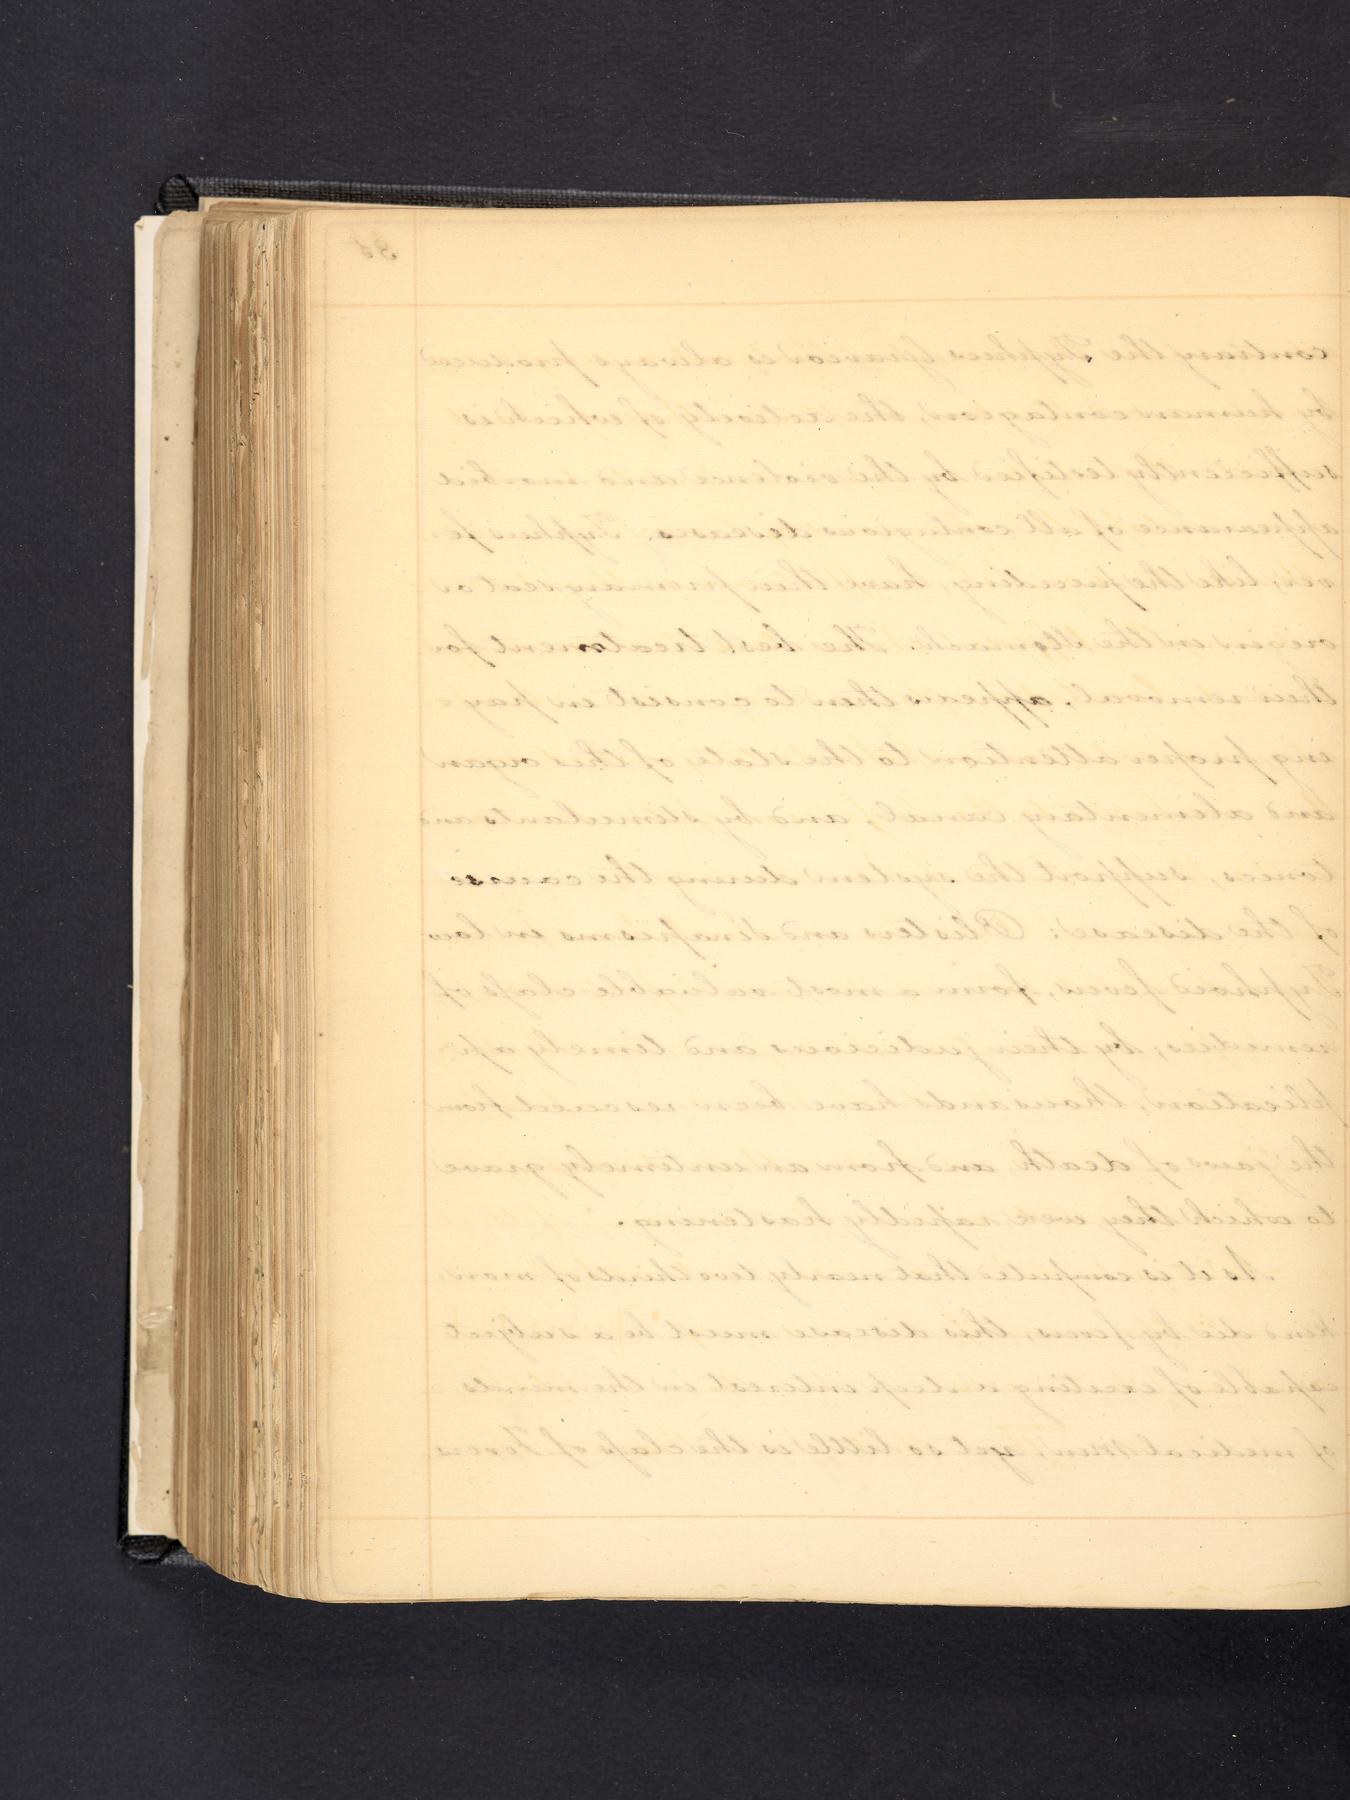 36
contrary the Typhus Gravior is always produced
by human contagion, the activity of which is
sufficiently testified by the violence and morbid
appearance of all contagious diseases. Typhus fe-
ver, like the preceding, have their primary seat or
origin in the stomach. The best treatment for
their removal, appears then to consist in pay-
ing proper attention to the state of this organ
and alimentary canal, and by stimulants and
tonics, support the system during the course
of the disease: Blisters and sinapisms in low
Typhoid fevers, form a most valuable class of
remedies; by their judicious and timely ap-
plication, thousands have been rescued from
the jaws of death and from an untimely grave
to which they were rapidly hastening.
As it is computed that nearly two thirds of man-
kind die by fevers, this disease must be a subject
capable of exciting a deep interest in the minds
of medical men, yet so little is the class of Fevers